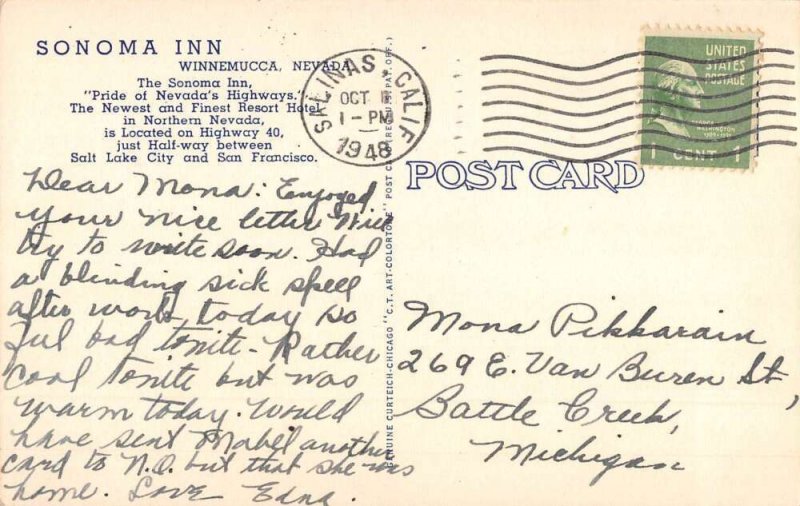 SONOMA INN
WINNEMUCCA, NEVADA
The Sonoma Inn,
"Pride of Nevada's Highways."
The Newest and Finest Resort Hotel
in Northern Nevada,
is Located on Highway 40,
just Half-way between
Salt Lake City and San Francisco.
Dear Mona: Enjoyed
your nice letter Will
try to write soon. Had
a blinding sick spell
after work today so
feel bad tonite. Rather
cool tonite but was
warm today. Would
have sent Mabel another
card to N.O. but that she was
home. Love Edna.
GENUINE CURTEICH-CHICAGO "C.T. ART-COLORTONE" POST CARD PAT. OFF.)
SALINAS, CALIF
OCT
1-PM
1948
UNITED
STATES
POSTAGE
WASHINGTON
1 CENT 1
POST CARD
Mona Pikkarain
269 E. Van Buren St,
Battle Creek,
Michigan